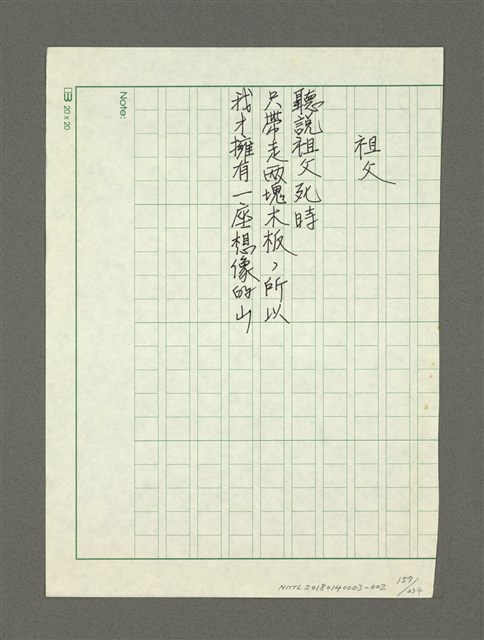 祖父
聽說祖父死時
只帶走兩塊木板，所以
我才擁有一座想像的山
Note:
20 x 20
NMTL20180140003-002
157/034